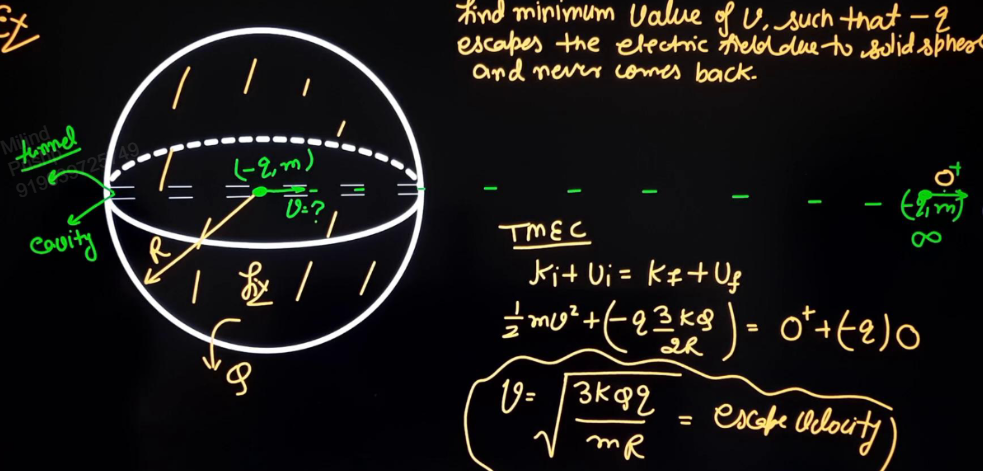 Ex
find minimum Value of v, such that -q
escapes the electric field due to solid sphere
and never comes back.
tunnel
cavity
(-q, m)
v=?
R
fix
Q
0⁺
(-q, m)
∞
TMEC
Ki + Ui = Kf + Uf
1/2 mv² + (-q 3KQ/2R) = 0⁺ + (-q)0
v = √(3KQq/mR) = escape velocity